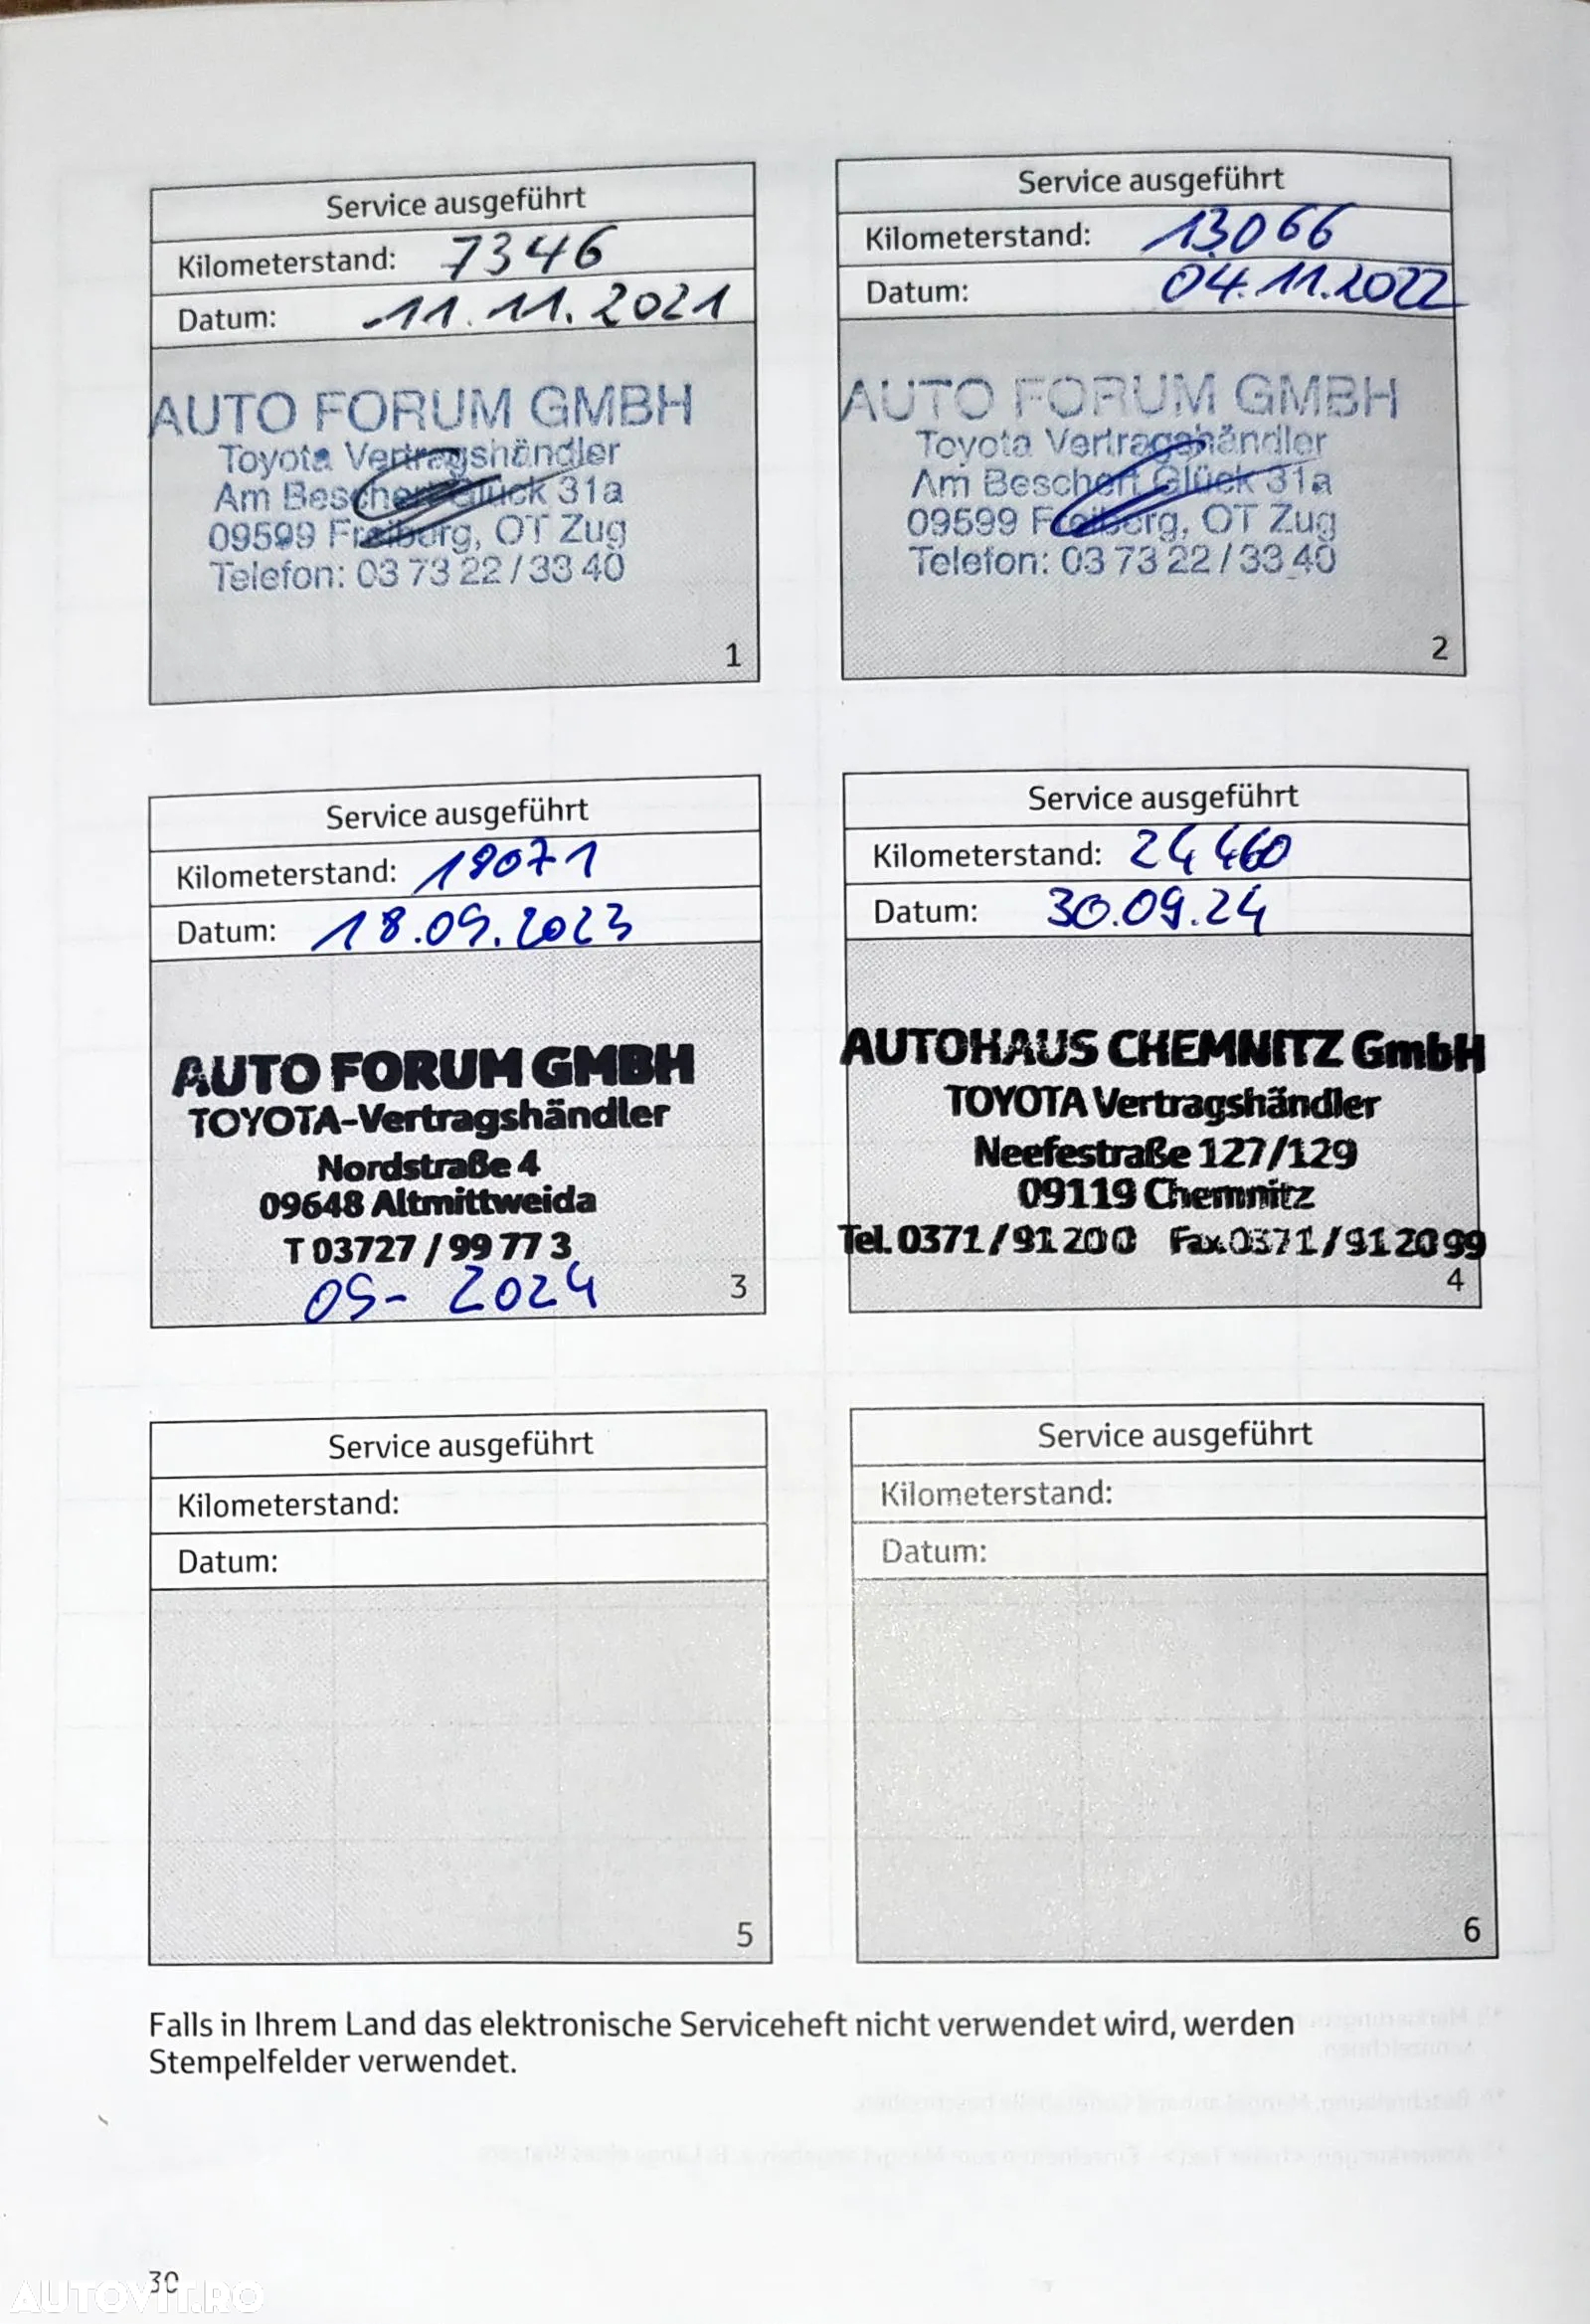 Service ausgeführt
Kilometerstand: 7346
Datum: 11.11.2021
AUTO FORUM GMBH
Toyota Vertragshändler
Am Beschert Glück 31a
09599 Freiberg, OT Zug
Telefon: 03 73 22 / 33 40
1
Service ausgeführt
Kilometerstand: 13.066
Datum: 04.11.2022
AUTO FORUM GMBH
Toyota Vertragshändler
Am Beschert Glück 31a
09599 Freiberg, OT Zug
Telefon: 03 73 22 / 33 40
2
Service ausgeführt
Kilometerstand:
Datum: 18.09.2023
AUTO FORUM GMBH
TOYOTA-Vertragshändler
Nordstraße 4
09648 Altmittweida
T 03727 / 99 77 3
09- 2024
3
Service ausgeführt
Kilometerstand: 24460
Datum: 30.09.24
AUTOHAUS CHEMNITZ GmbH
TOYOTA Vertragshändler
Neefestraße 127/129
09119 Chemnitz
Tel. 0371/91 20 0 Fax 0371/91 20 99
4
Service ausgeführt
Kilometerstand:
Datum:
5
Service ausgeführt
Kilometerstand:
Datum:
6
Falls in Ihrem Land das elektronische Serviceheft nicht verwendet wird, werden
Stempelfelder verwendet.
30
AUTOVIT.RO